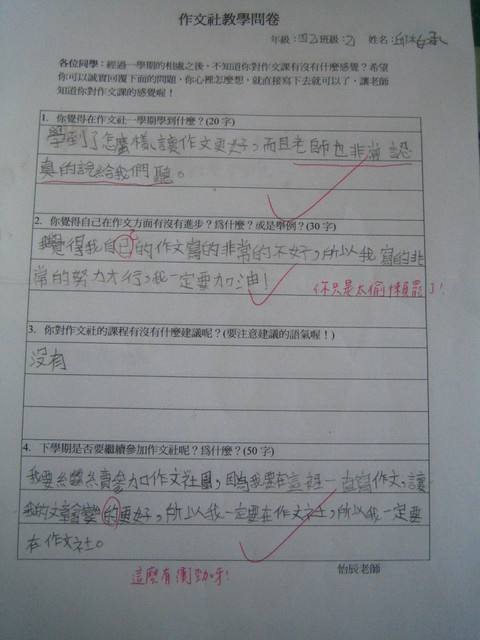 作文社教學問卷
年級：四 班級： 姓名：邱
各位同學：經過一學期的相處之後，不知道你對作文課有沒有什麼感覺？希望
你可以誠實回覆下面的問題，你心裡怎麼想，就直接寫下去就可以了，讓老師
知道你對作文課的感覺喔！
1. 你覺得在作文社一學期學到什麼？(20 字)
學到了怎麼樣讓作文更好，而且老師也非常認
真的說給我們聽。
2. 你覺得自己在作文方面有沒有進步？為什麼？或是舉例？(30 字)
我覺得我自己的作文寫的非常的不好，所以我寫的非
常的努力才行，我一定要加油！
你只是太偷懶罷了！
3. 你對作文社的課程有沒有什麼建議呢？(要注意建議的語氣喔！)
沒有
4. 下學期是否要繼續參加作文社呢？為什麼？(50 字)
我要繼續參加作文社團，因為我要在這裡一直寫作文，讓
我的文章會變的更好，所以我一定要在作文社，所以我一定要
在作文社。
這麼有衝勁呀！
怡辰老師